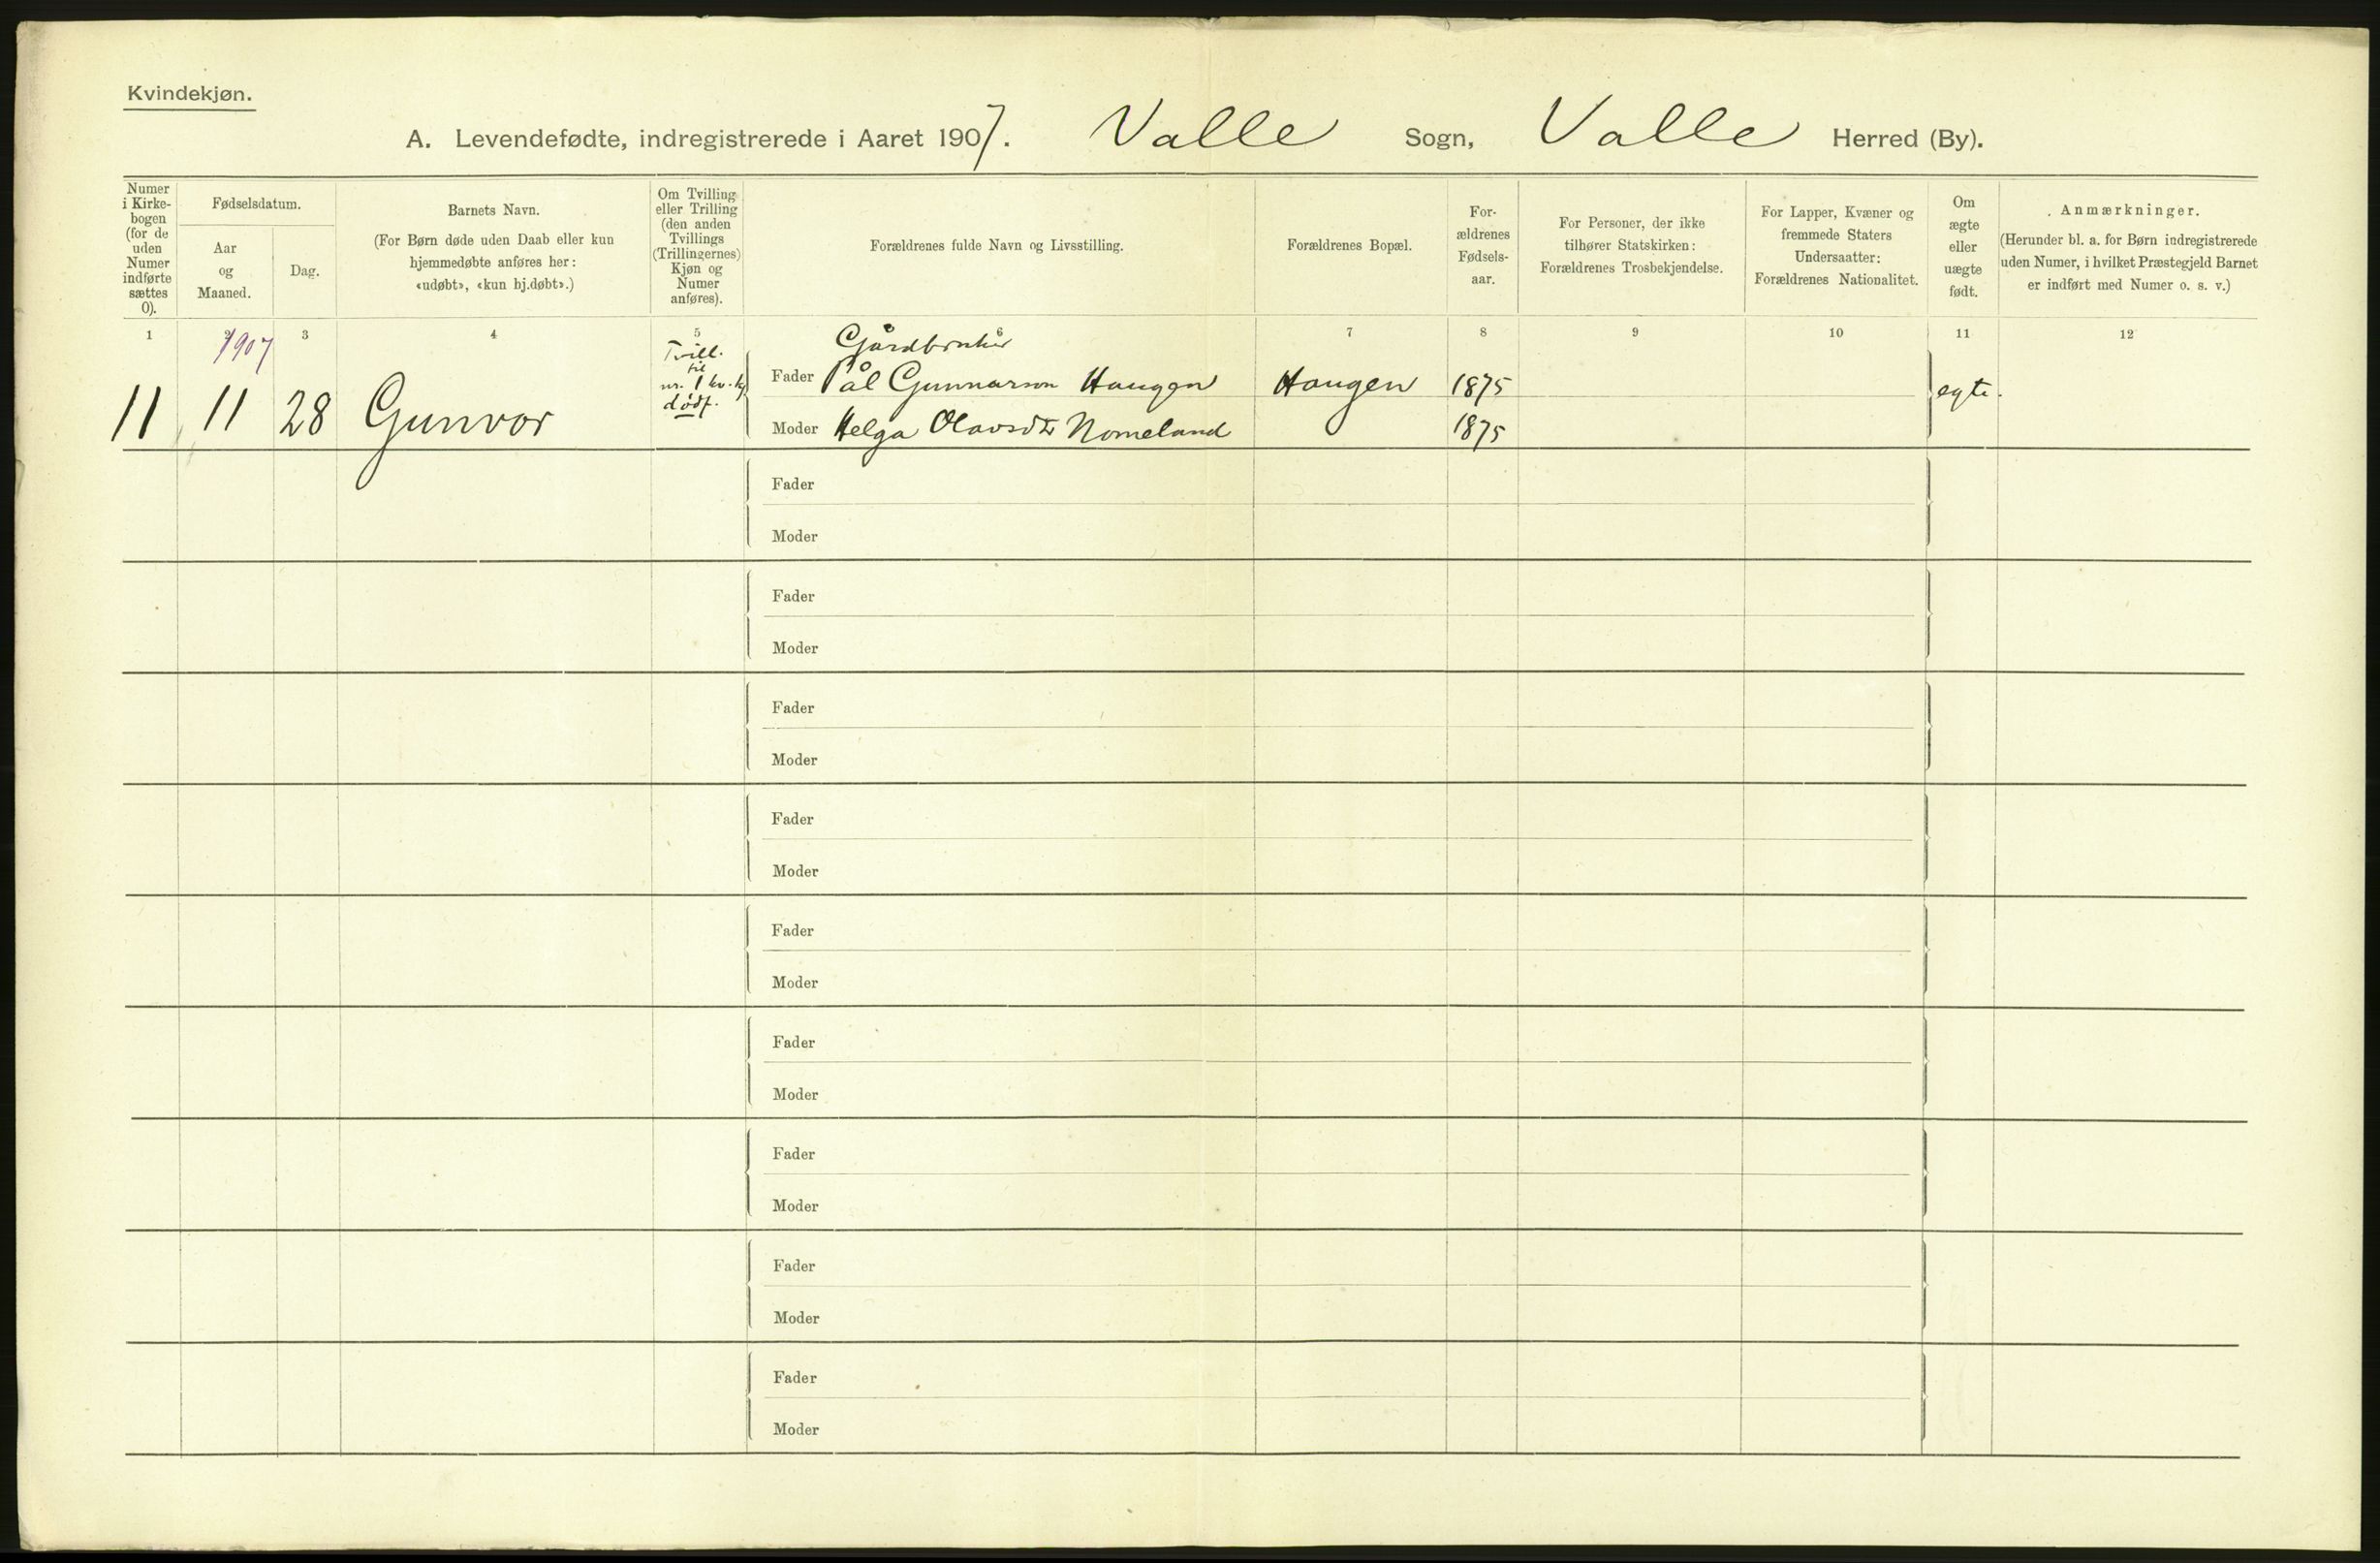 Kvindekjøn.
A. Levendefødte, indregistrerede i Aaret 1907. Valle Sogn, Valle Herred (By).
Numer
i Kirke-
bogen
(for de
uden
Numer
indførte
sættes
0).
Fødselsdatum.
Aar
og
Maaned.
Dag.
Barnets Navn.
(For Børn døde uden Daab eller kun
hjemmedøbte anføres her:
«udøbt», «kun hj.døbt».)
Om Tvilling
eller Trilling
(den anden
Tvillings
(Trillingernes)
Kjøn og
Numer
anføres).
Forældrenes fulde Navn og Livsstilling.
Forældrenes Bopæl.
For-
ældrenes
Fødsels-
aar.
For Personer, der ikke
tilhører Statskirken:
Forældrenes Trosbekjendelse.
For Lapper, Kvæner og
fremmede Staters
Undersaatter:
Forældrenes Nationalitet.
Om
ægte
eller
uægte
født.
Anmærkninger.
(Herunder bl. a. for Børn indregistrerede
uden Numer, i hvilket Præstegjeld Barnet
er indført med Numer o. s. v.)
1 2 3 4 5 6 7 8 9 10 11 12
1907
11 11 28 Gunvor
Tvill.
til
nr. 1 kv. kj
dødf.
Gårdbruker
Fader Pål Gunnarson Haugen Haugen 1875 egte.
Moder Helga Olavsdtr Nomeland 1875
Fader
Moder
Fader
Moder
Fader
Moder
Fader
Moder
Fader
Moder
Fader
Moder
Fader
Moder
Fader
Moder
Fader
Moder